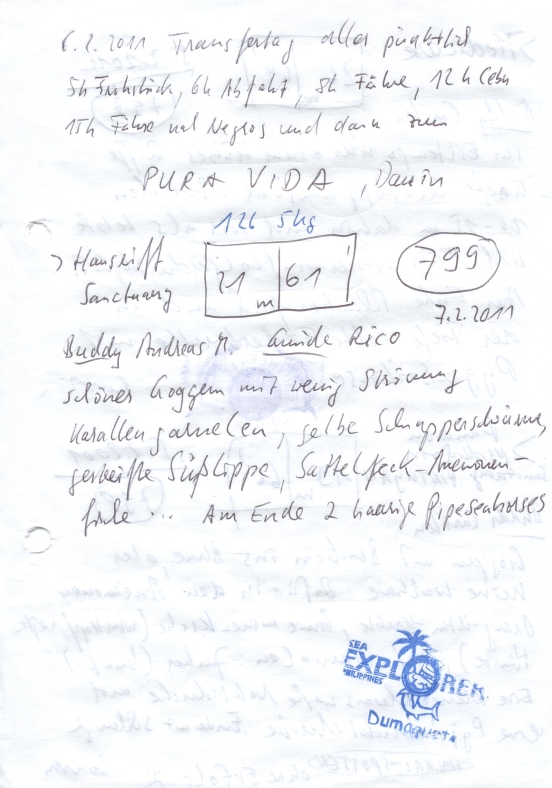 6.2.2011 Transfertag alles pünktlich
5h Frühstück, 6h Abfahrt, 8h Fähre, 12h Cebu
15h Fähre nach Negros und dann zum
PURA VIDA, Dauin
12l 5kg
> Hausriff
Sanctuary
21 m 61
799
7.2.2011
Buddy Andreas M. Guide Rico
schöner Tauchgang mit wenig Strömung
Korallengarnelen, gelbe Schnapperschwärme,
gestreifte Süßlippe, Sattelfleck-Anemonen-
fische ... Am Ende 2 haarige Pipeseahorses
SEA
EXPLORER
PHILIPPINES
Dumaguete